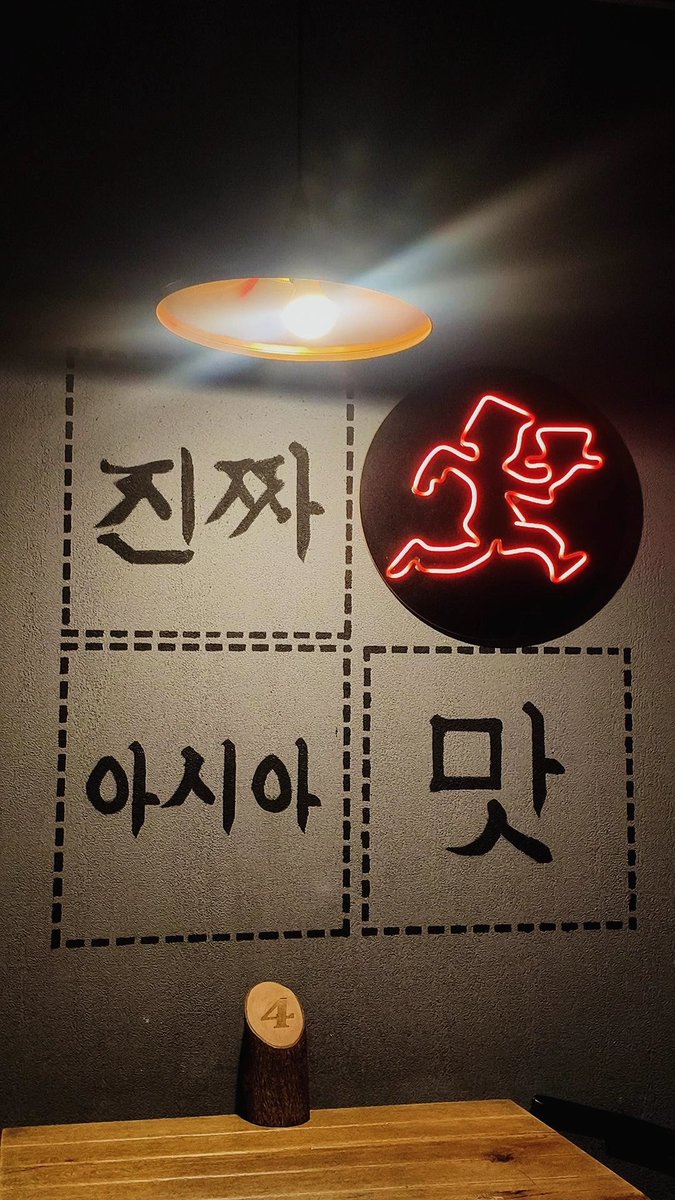 진짜
아시아 맛
4